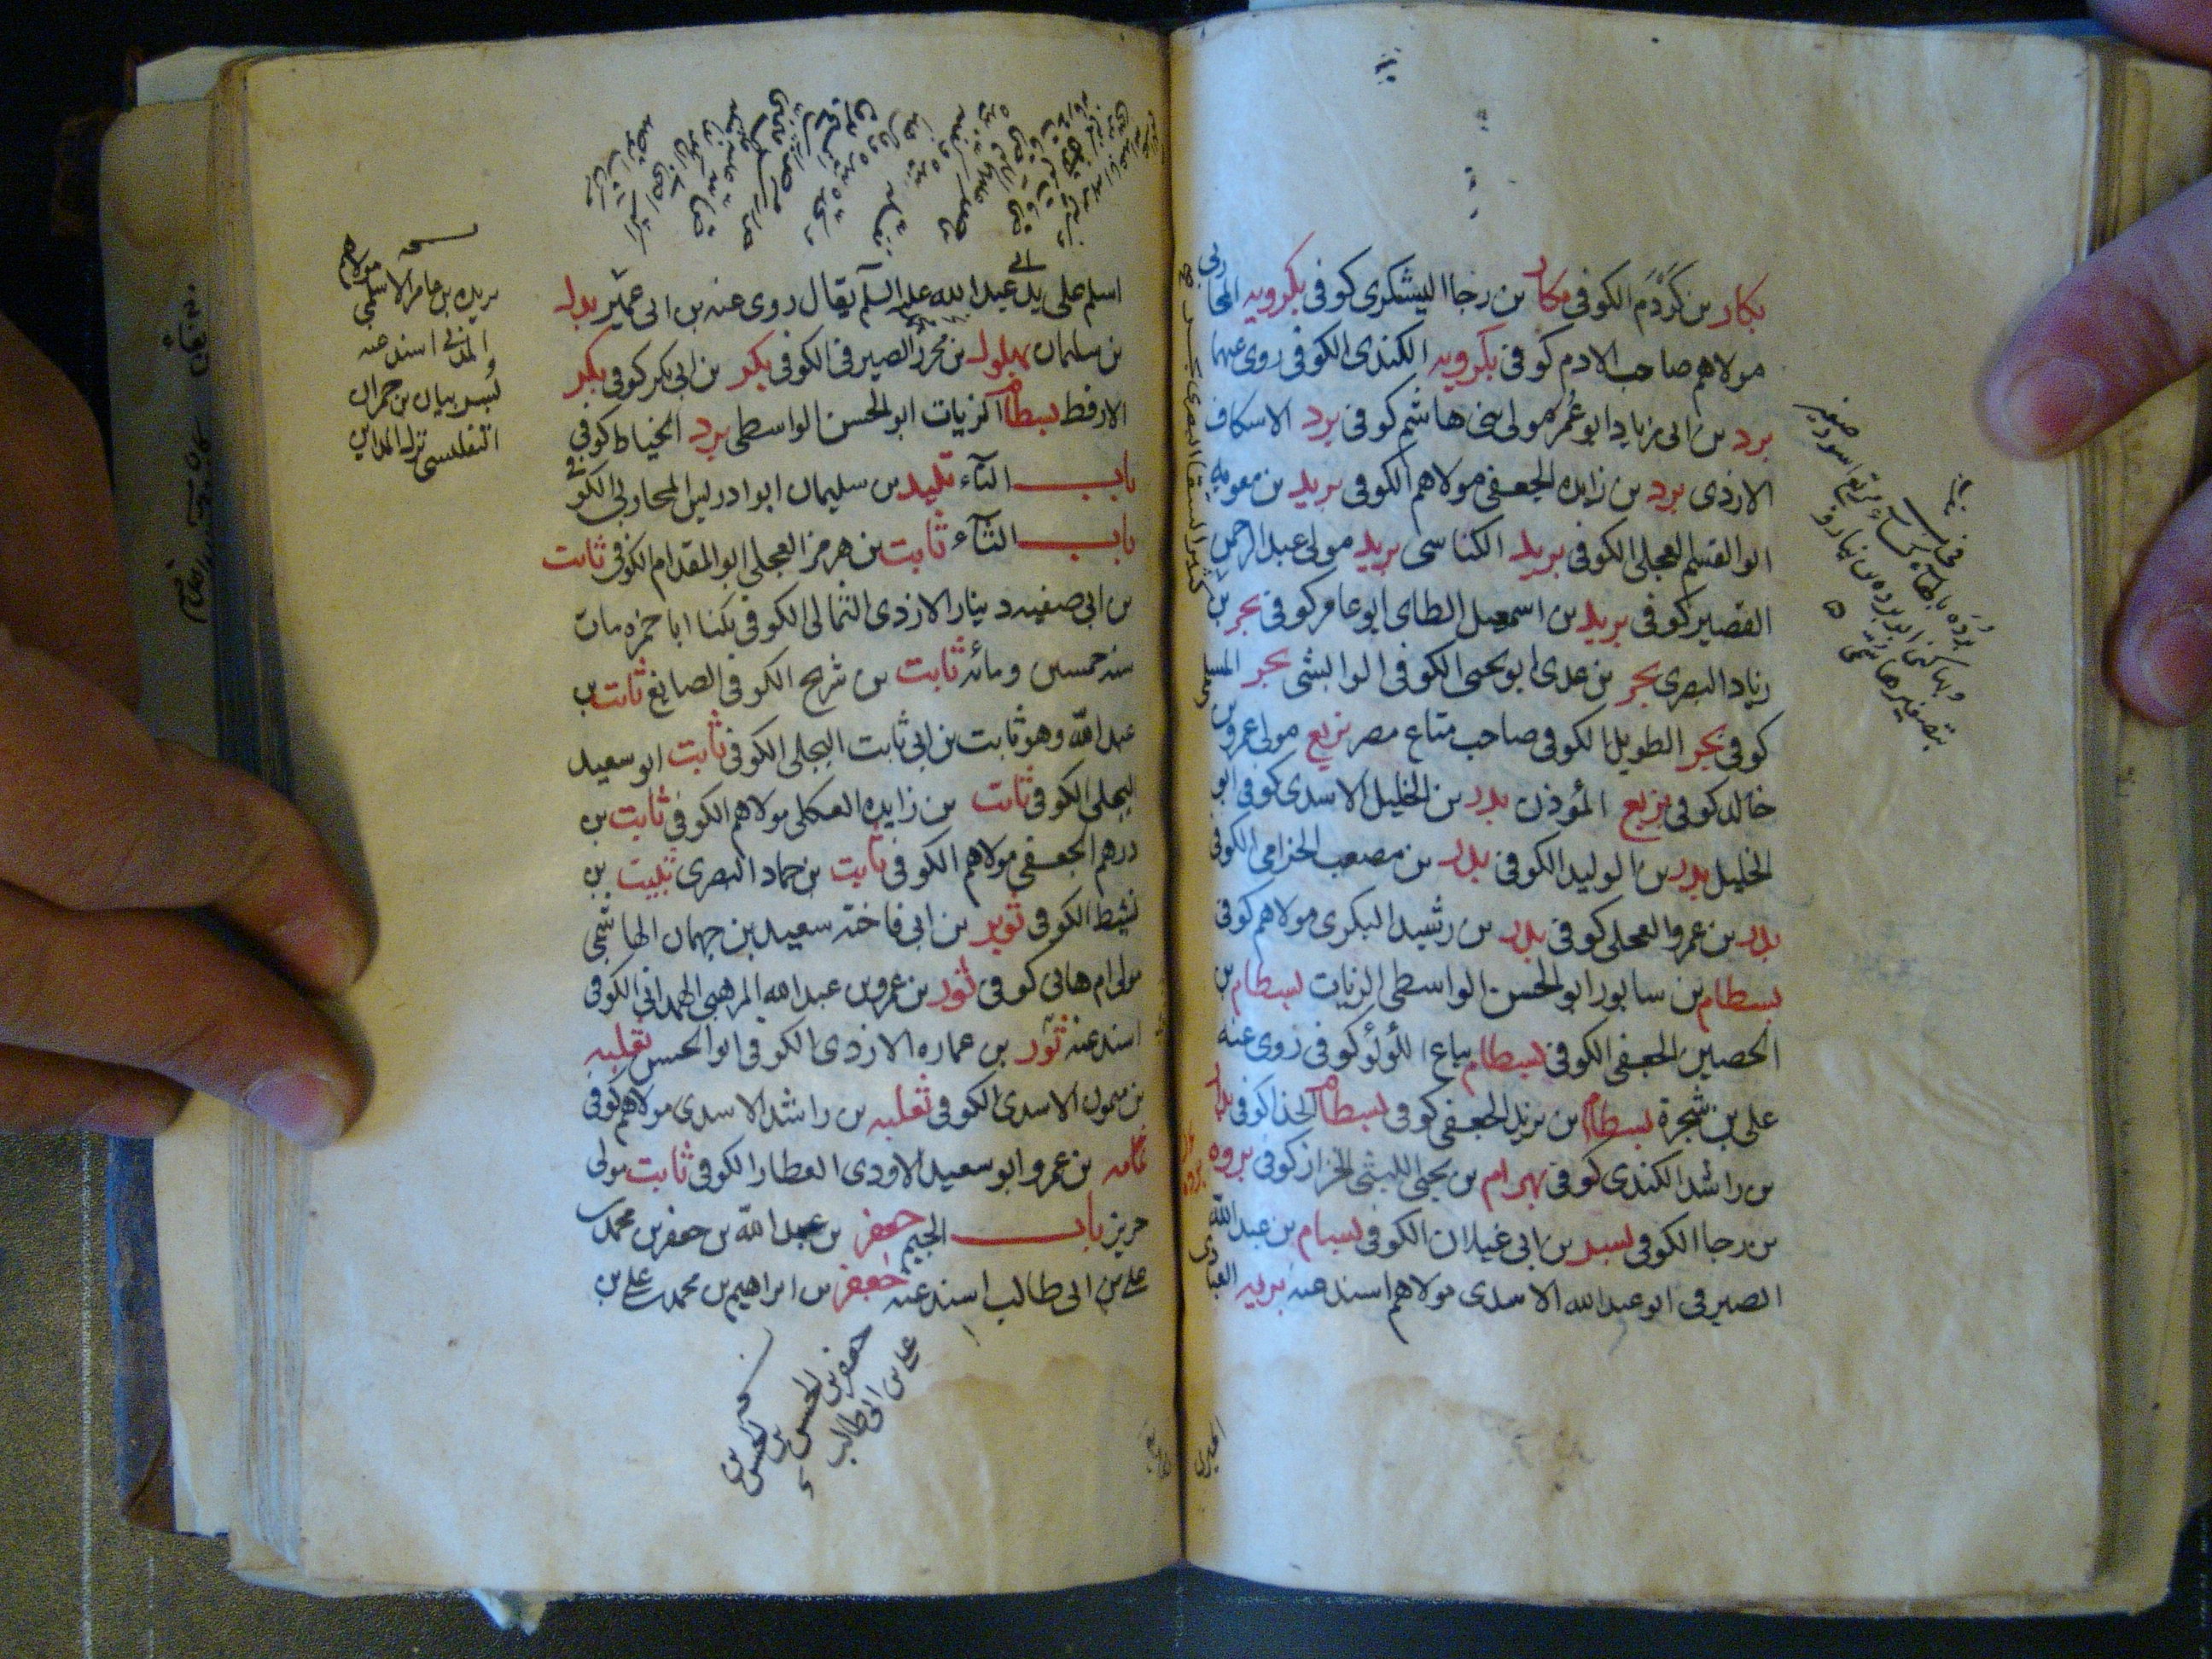 بكار بن كَردَم الكوفى بكار بن رجا اليشكرى كوفى بكرويه المحاربى
مولاهم صاحب الادم كوفى بكرويه الكندى الكوفى روى عنهما
برد بن ابى زياد ابو عُمَر مولى بنى هاشم كوفى برد الاسكاف
الازدى برد بن زايده الجعفى مولاهم الكوفى بريد بن معويه
ابو القسم العجلى الكوفى بريد الكناسى بريد مولى عبد الرحمن
القصير كوفى بريد بن اسمعيل الطاى ابو عامر كوفى بحر بن
زياد البصرى بحر بن عدى ابو يحيى الكوفى الوابشى بحر المسلى
كوفى بحر الطويل الكوفى صاحب متاع مصر بزيع مولى عمرو بن
خالد كوفى بزيع المؤذن بدر بن الخليل الاسدى كوفى ابو
الخليل بدر بن الوليد الكوفى بدر بن مصعب الخزامى الكوفى
بدر بن عمرو العجلى كوفى بدر بن رشيد البكرى مولاهم كوفى
بسطام بن سابور ابو الحسن الواسطى الزيات بسطام بن
الحصين الجعفى الكوفى بسطام بياع اللؤلؤ كوفى روى عنه
على بن شجرة بسطام بن يزيد الجعفى كوفى بسطام الحذا كوفى بلال
بن راشد الكندى كوفى بهرام بن يحيى الليثى الخزاز كوفى بروه
بن رجا الكوفى بسر بن ابى غيلان الكوفى بسام بن عبد الله
الصيرفى ابو عبد الله الاسدى مولاهم اسند عنه بريه العبادى
الحيرى
كثير السقا البصرى
اسلم على يد ابى عبد الله عليه السلم يقال روى عنه بن ابى عمير بدل
بن سليمان بهلول بن محرز الصيرفى الكوفى بكر بن ابى بكر كوفى بكر
الارقط بسطام الزيات ابو الحسن الواسطى برد الخياط كوفى
باب التآء تليد بن سليمان ابو ادريس المحاربى الكوفى
باب الثآء ثابت بن هرمز العجلى ابو المقدام الكوفى ثابت
بن ابى صفيه دينار الازدى الثمالى الكوفى يكنا ابا حمزه مات
سنه خمسين ومائه ثابت بن شريح الكوفى الصايغ ثابت بن
عبد الله وهو ثابت بن ابى ثابت البجلى الكوفى ثابت ابو سعيد
البجلى الكوفى ثابت بن زايده العكلى مولاهم الكوفى ثابت بن
درهم الجعفى مولاهم الكوفى ثابت بن حماد البصرى ثبيت بن
نشيط الكوفى ثوير بن ابى فاخته سعيد بن جهمان الهاشمى
مولى ام هانى كوفى ثور بن عمرو بن عبد الله المرهبى الهمدانى الكوفى
اسند عنه ثور بن عماره الازدى الكوفى ابو الحسن ثعلبه
بن ميمون الاسدى الكوفى ثعلبه بن راشد الاسدى مولاهم كوفى
ثمامه بن عمرو ابو سعيد الاودى العطار الكوفى ثابت مولى
حريز باب الجيم جعفر بن عبد الله بن جعفر بن محمد بن
على بن ابى طالب اسند عنه جعفر بن ابراهيم بن محمد بن على بن
جعفر بن الحسن بن
على بن ابى طالب
نسخه
بريده بن عامر الاسلمى مولاهم
المدنى اسند عنه
بيان بن حمران
التفليسى نزل المداين